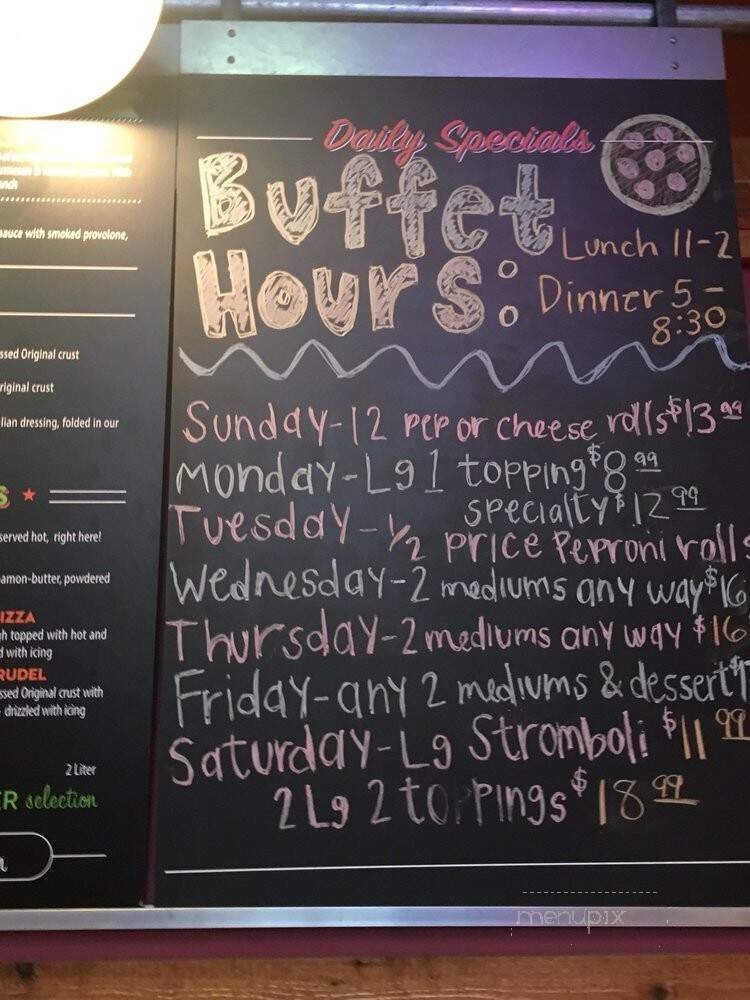 sauce with smoked provolone,
ssed Original crust
riginal crust
lian dressing, folded in our
served hot, right here!
amon-butter, powdered
IZZA
gh topped with hot and
d with icing
RUDEL
ssed Original crust with
drizzled with icing
2 Liter
ER selection
Daily Specials
Buffet Hours:
Lunch 11-2
Dinner 5-
8:30
Sunday-12 pep or cheese rolls $13.99
Monday-Lg 1 topping $8.99
specialty $12.99
Tuesday-1/2 price Peproni rolls
Wednesday-2 mediums any way $16
Thursday-2 mediums any way $16
Friday-any 2 mediums & dessert $1
Saturday-Lg Stromboli $11.99
2 Lg 2 toppings $18.99
menupix